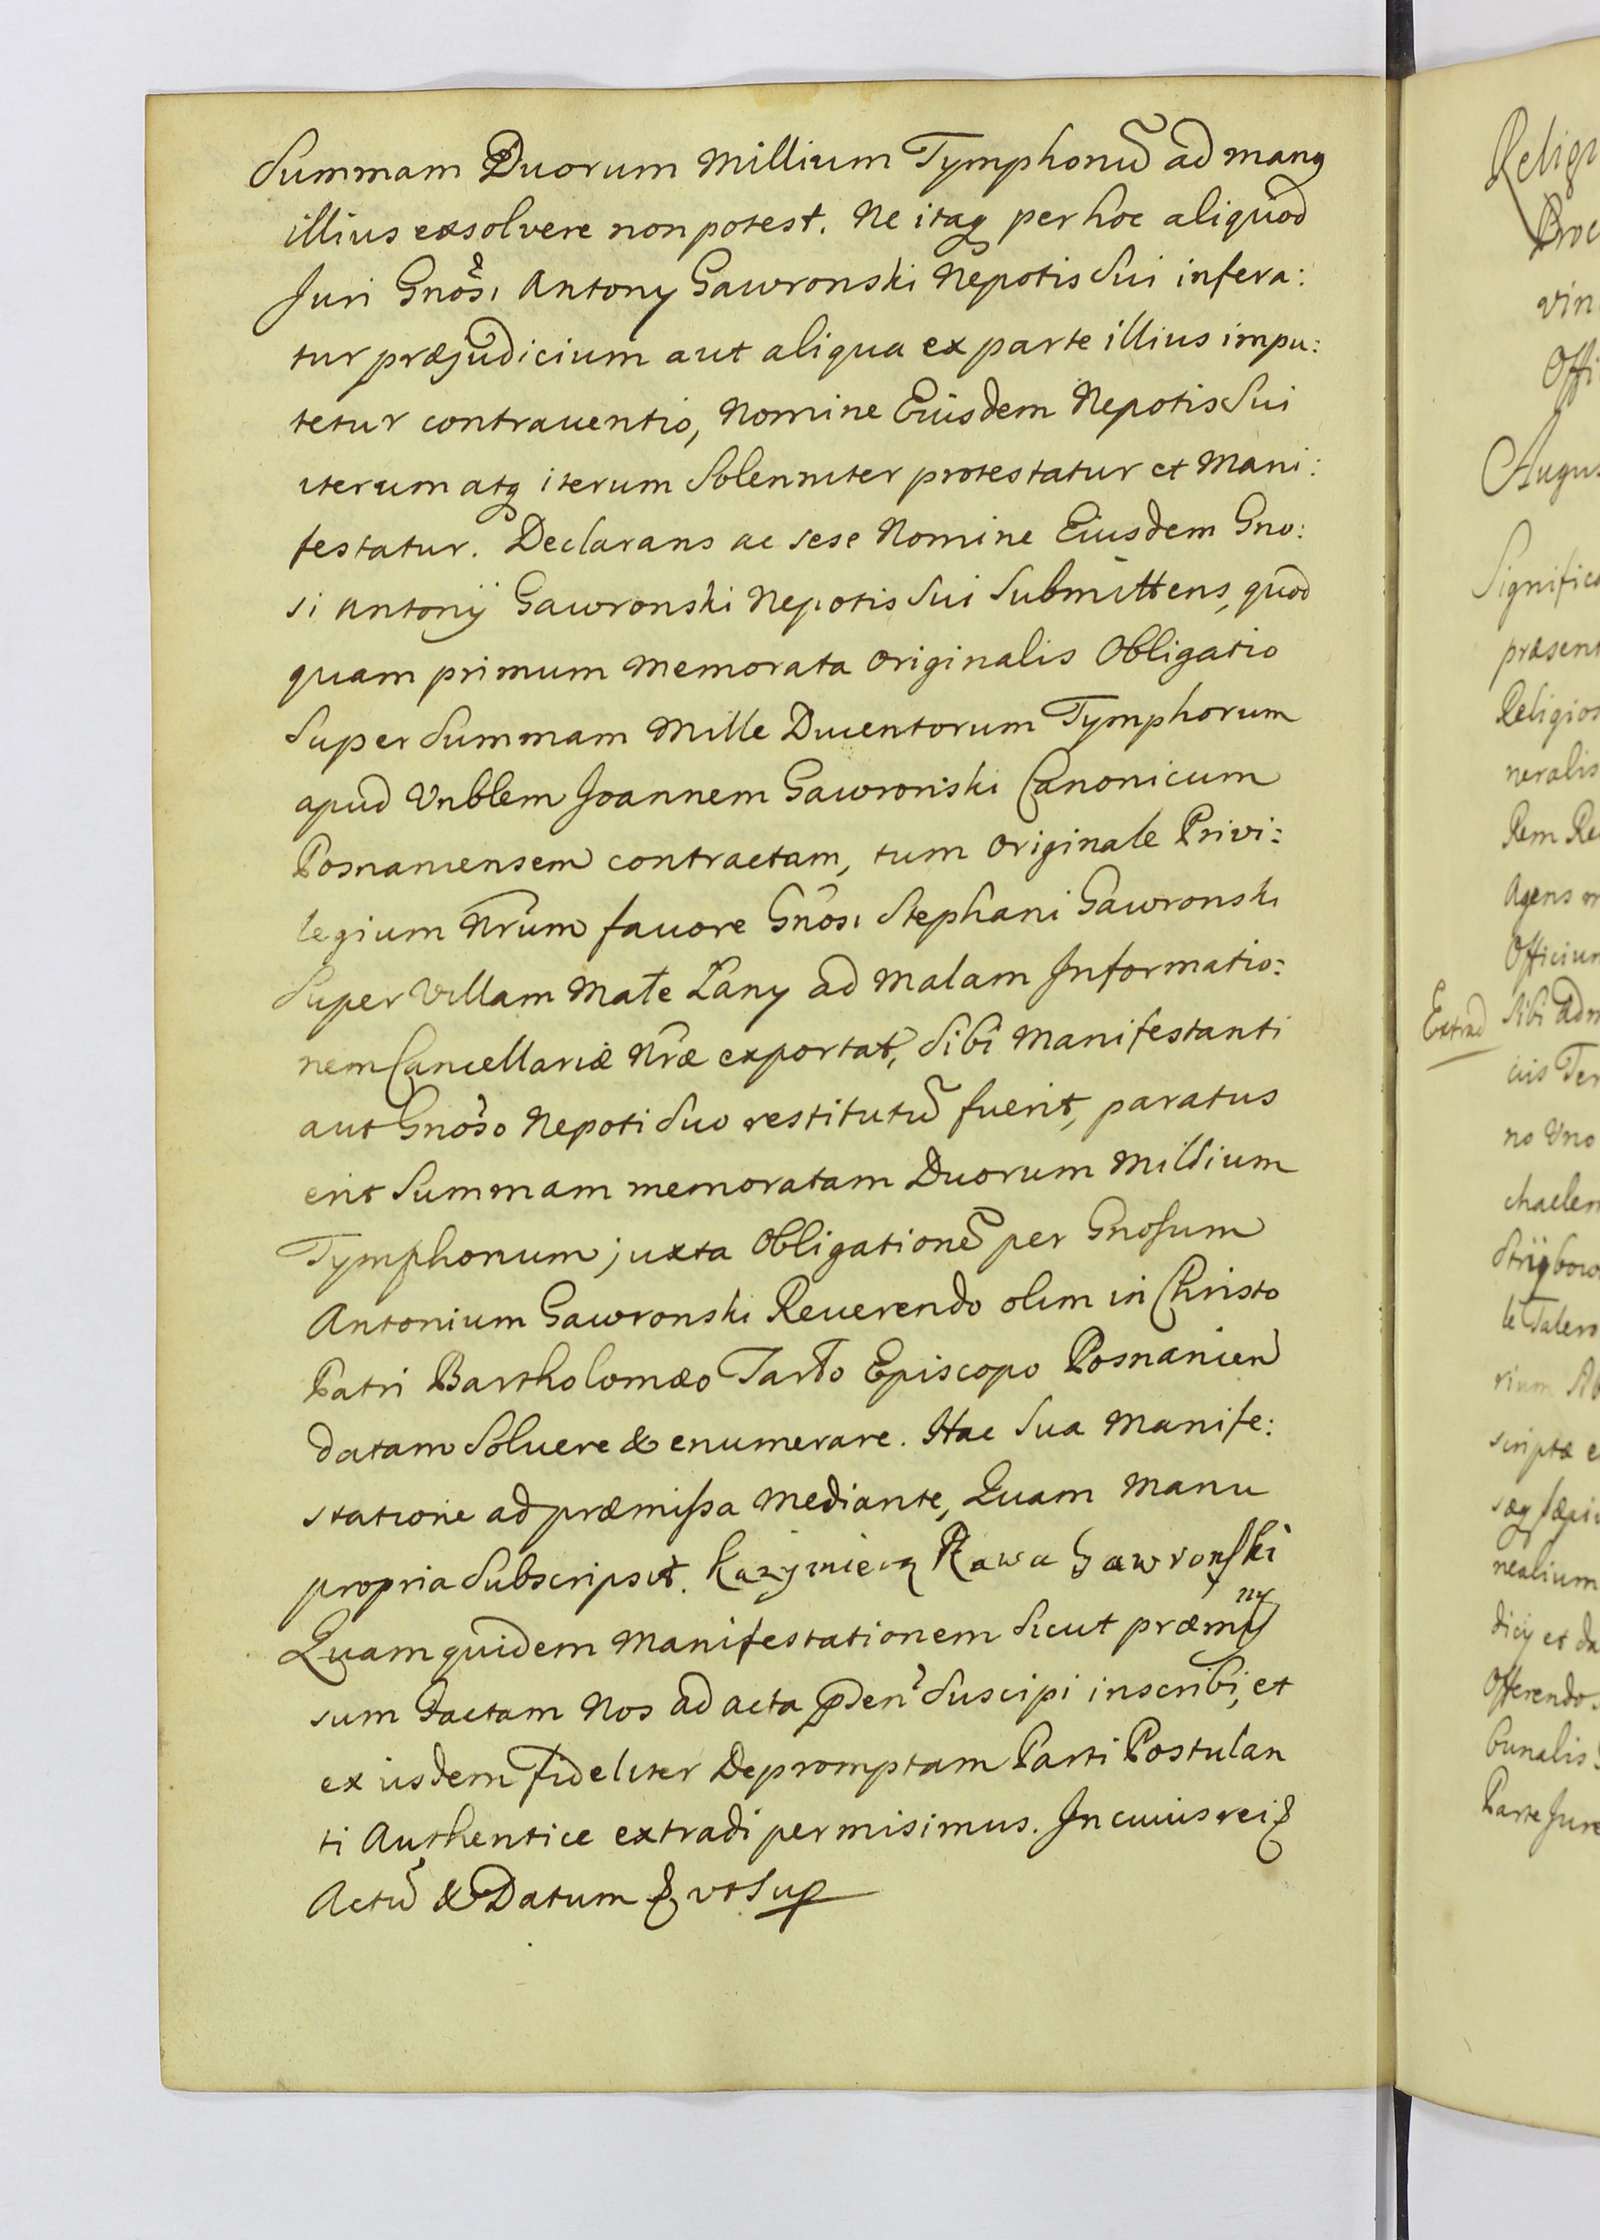 Summam Duorum Millium Tymphonũ ad manq
illius exsolvere non potest. Ne itaq per hoc aliquod
Juri Gnosi Antony Gawronski Nepotis Sui infera:
tur præjudicium aut aliqua ex parte illius impu:
tetur contrauentio, Nomine Eiusdem Nepotis Sui
iterum atq iterum Solenniter protestatur et Mani:
festatur. Declarans ac sese Nomine Eiusdem Gno:
si Antonij Gawronski Nepotis Sui Submittens, quod
quam primum Memorata Originalis Obligatio
Super Summam Mille Ducentorum Tymphorum
apud Vnblem Joannem Gawronski Canonicum
Posnaniensem contractam, tum Originale Privi:
legium Nrum fauore Gnosi Stephani Gawronski
Super Villam Małe Łany ad Malam Informatio:
nem Cancellariæ Nræ exportat, Sibi Manifestanti
aut Gnoso Nepoti Suo restitutũ fuerit, paratus
erit Summam memoratam Duorum Millium
Tymphonum juxta Obligationẽ per Gnosum
Antonium Gawronski Reuerendo olim in Christo
Patri Bartholomæo Tarło Episcopo Posnanien
datam Soluere & enumerare. Hac Sua Manife:
statione ad præmissa Mediante, Quam Manu
propria Subscripsit. Kazymierz Rawa Gawronski
Quam quidem Manifestationem Sicut præm
sum factam Nos ad acta pden Suscipi inscribi, et
ex iisdem fideliter Depromptam Parti Postulan
ti Authentice extradi permisimus. In cuius rei &
Actũ & Datum & vt Sup
Religi
Proc
vin
Offi
Augus
Significa
præsent
Religios
neralis
Rem Re
Agens
Officium
Extrad Sibi adm
cis Ter
no Vno
chaelem
Strÿbow
le Talero
rium
scriptæ e
nealium
dicij et da
Offerendo
bunalis
Parte Jure